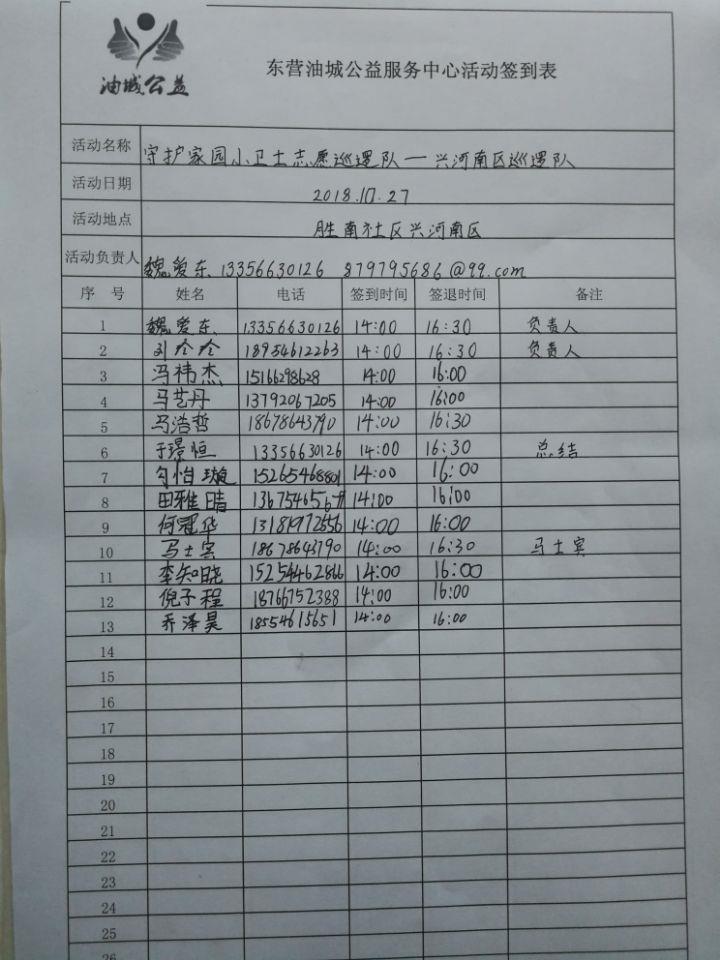 油城公益
东营油城公益服务中心活动签到表
活动名称 守护家园小卫士志愿巡逻队一兴河南区巡逻队
活动日期 2018.10.27
活动地点 胜南社区兴河南区
活动负责人 魏爱东 13356630126 879795686@qq.com
序 号 姓名 电话 签到时间 签退时间 备注
1 魏爱东 13356630126 14:00 16:30 负责人
2 刘玲玲 18954612263 14:00 16:30 负责人
3 冯祎杰 15166298628 14:00 16:00
4 马艺丹 13792067205 14:00 16:00
5 马浩哲 18678643790 14:00 16:30
6 于璟恒 13356630126 14:00 16:30 总结
7 勾怡璇 15265468801 14:00 16:00
8 田雅晴 14:00 16:00
9 何冠华 13181972656 14:00 16:00
10 马士宾 18678643790 14:00 16:30 马士宾
11 李知晓 15254462866 14:00 16:00
12 倪子程 18766752388 14:00 16:00
13 乔泽昊 18554615651 14:00 16:00
14
15
16
17
18
19
20
21
22
23
24
25
26